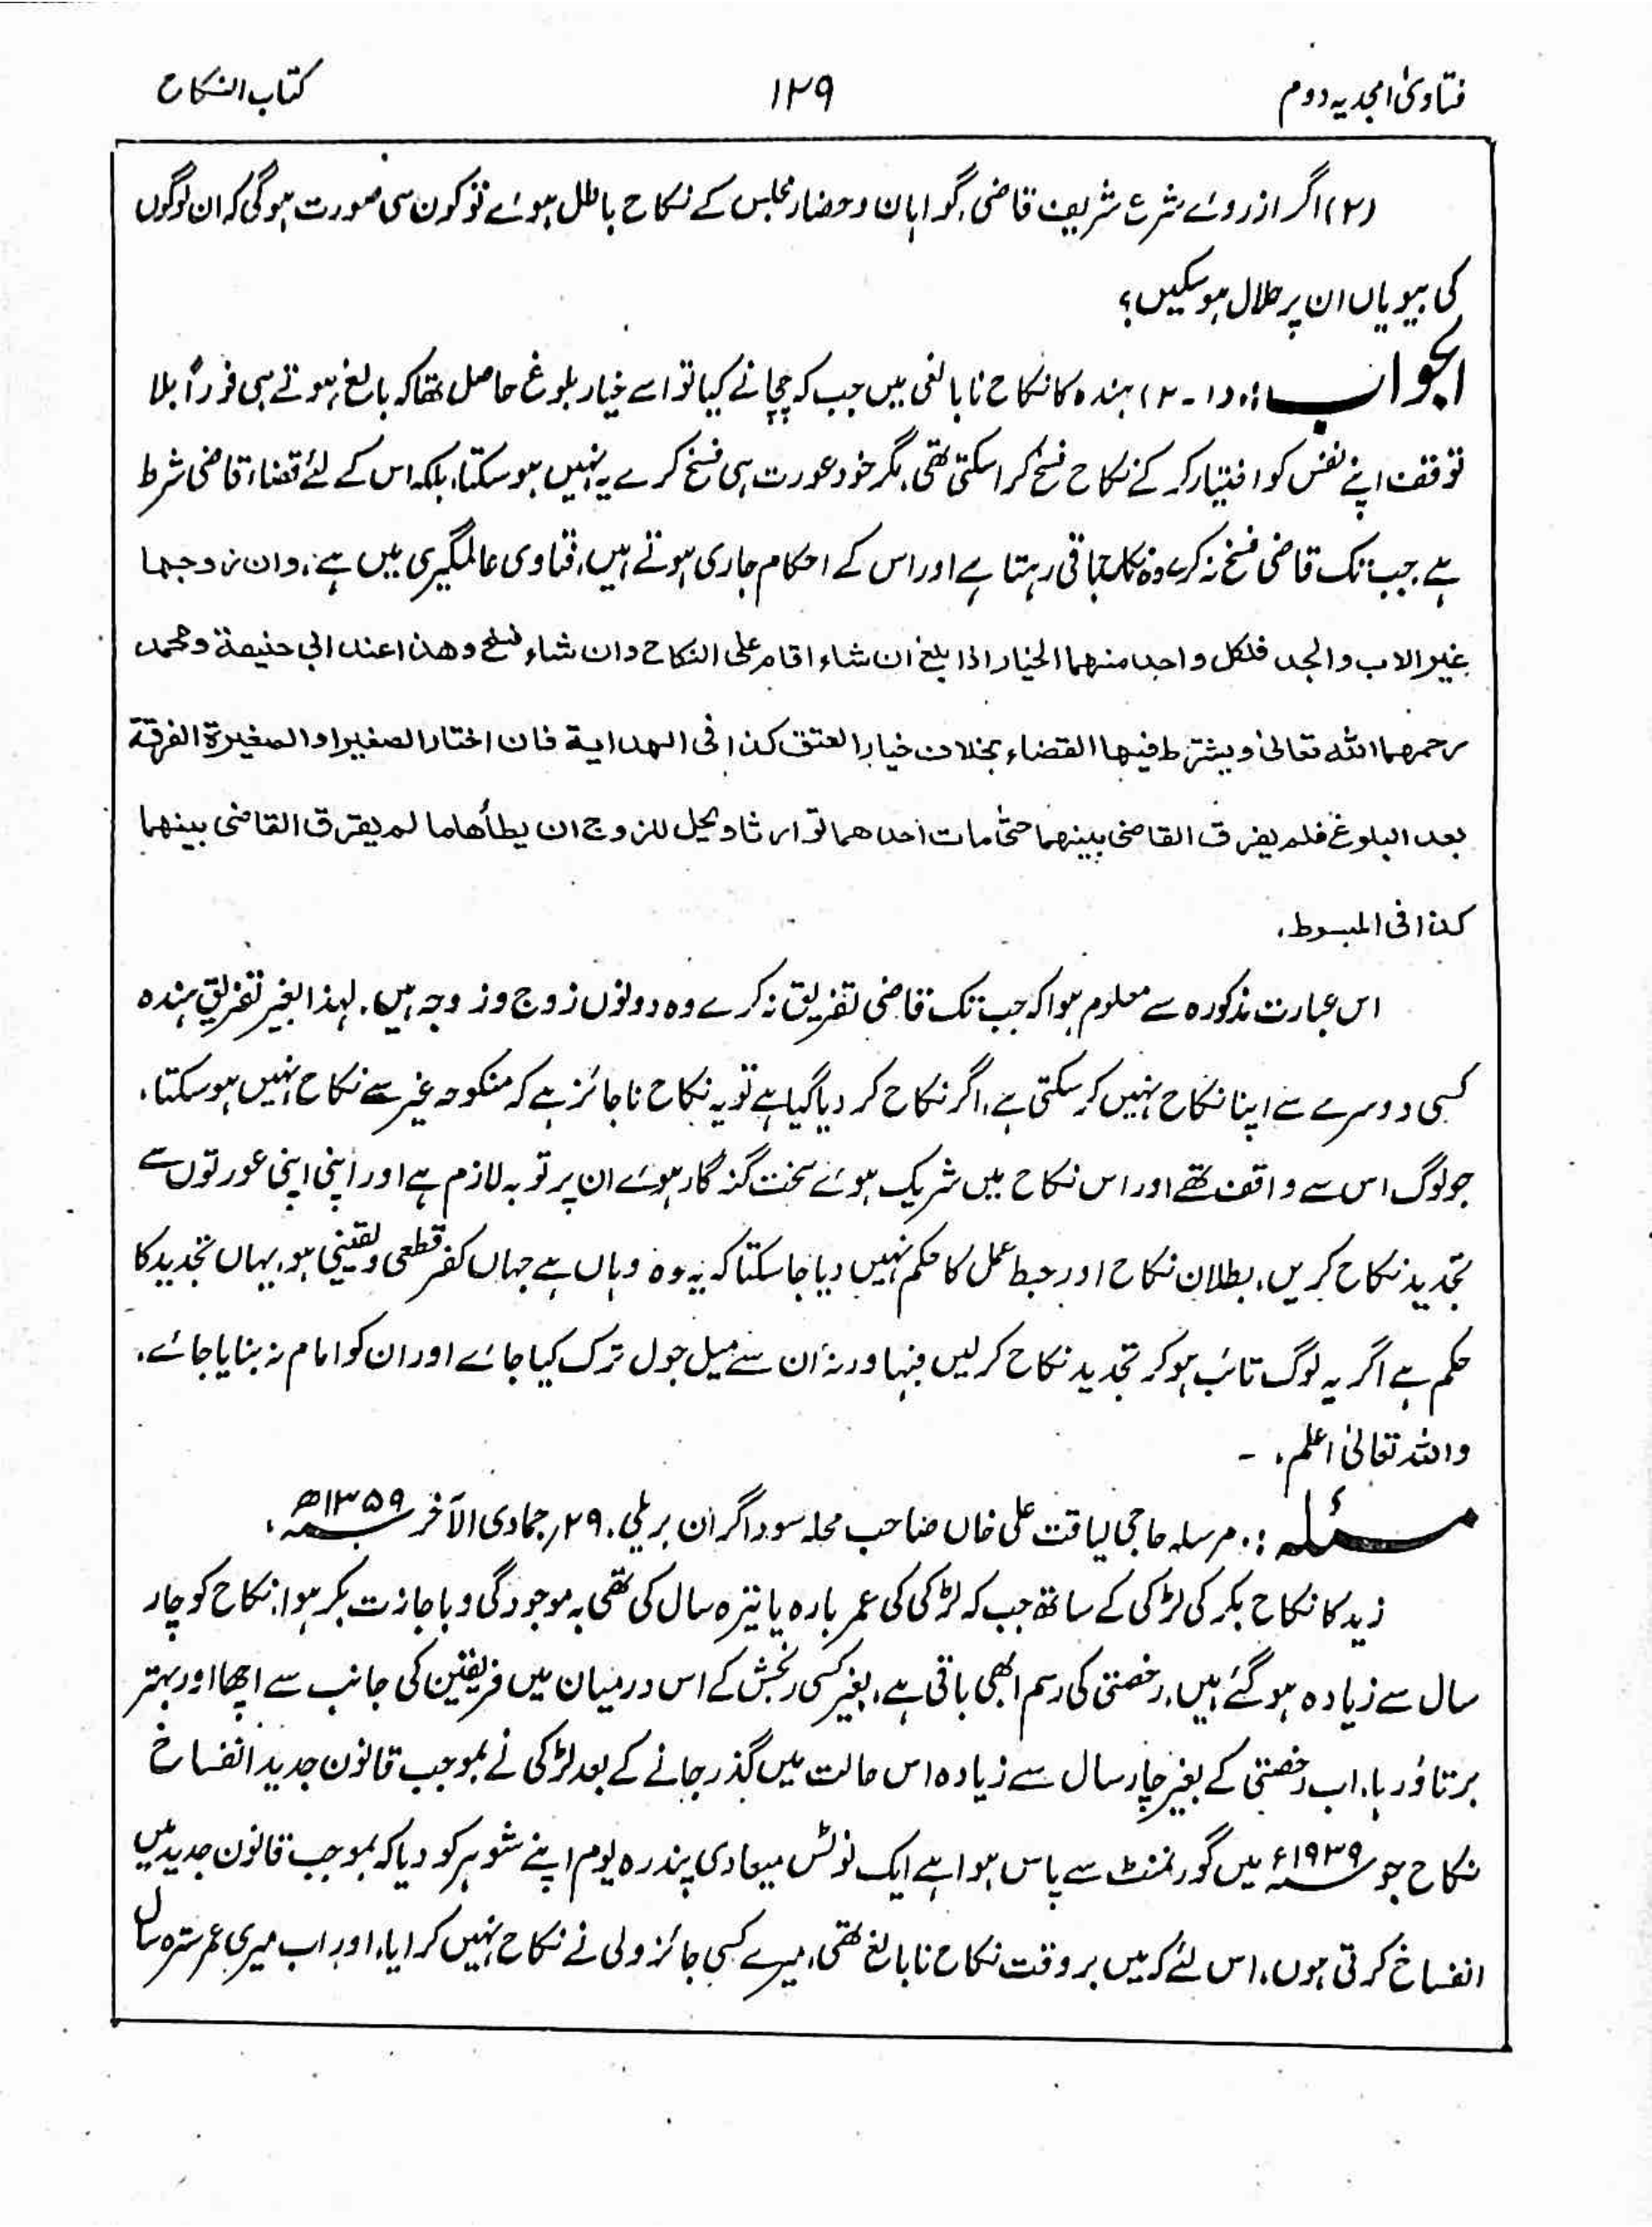 فتاویٰ امجدیہ دوم
۱۲۹
کتاب النکاح
(۲) اگر از روئے شرع شریف قاضی، گواہان و حضار مجلس کے نکاح باطل ہوئے تو کون سی صورت ہوگی کہ ان لوگوں
کی بیویاں ان پر حلال ہوسکیں؟
الجواب: (۱-۲) ہندہ کا نکاح نابالغی میں جب کہ چچا نے کیا تو اسے خیار بلوغ حاصل تھا کہ بالغ ہوتے ہی فوراً بلا
توقف اپنے نفس کو اختیار کرکے نکاح فسخ کراسکتی تھی، مگر خود عورت ہی فسخ کرے یہ نہیں ہوسکتا، بلکہ اس کے لئے قضاء قاضی شرط
ہے جب تک قاضی فسخ نہ کرے وہ نکاح باقی رہتا ہے اور اس کے احکام جاری ہوتے ہیں، فتاوی عالمگیری میں ہے: وان زوجهما
غیر الاب والجد فلکل واحد منهما الخیار اذا بلغ ان شاء اقام علی النکاح وان شاء فسخ وهذا عند ابی حنیفة ومحمد
رحمهما الله تعالیٰ ویشترط فیها القضاء بخلاف خیار العتق کذا فی الهدایة فان اختار الصغیر او الصغیرة الفرقة
بعد البلوغ فلم یفرق القاضی بینهما حتیٰ مات احدهما توارثا ویحل للزوج ان یطأها ما لم یفرق القاضی بینهما
کذا فی المبسوط۔
اس عبارت مذکورہ سے معلوم ہوا کہ جب تک قاضی تفریق نہ کرے وہ دونوں زوج و زوجہ ہیں۔ لہذا بغیر تفریق ہندہ
کسی دوسرے سے اپنا نکاح نہیں کرسکتی ہے، اگر نکاح کر دیا گیا ہے تو یہ نکاح ناجائز ہے کہ منکوحہ غیر سے نکاح نہیں ہوسکتا،
جو لوگ اس سے واقف تھے اور اس نکاح میں شریک ہوئے سخت گنہگار ہوئے ان پر توبہ لازم ہے اور اپنی اپنی عورتوں سے
تجدید نکاح کریں، بطلان نکاح اور حبط عمل کا حکم نہیں دیا جاسکتا کہ یہ وہ وہاں ہے جہاں کفر قطعی و یقینی ہو، یہاں تجدید کا
حکم ہے اگر یہ لوگ تائب ہوکر تجدید نکاح کرلیں فبہا ورنہ ان سے میل جول ترک کیا جائے اور ان کو امام نہ بنایا جائے،
واللہ تعالیٰ اعلم۔ -
مسئلہ: مرسلہ حاجی لیاقت علی خاں صاحب محلہ سوداگران بریلی، ۲۹؍ جمادی الآخر ۱۳۵۹ھ،
زید کا نکاح بکر کی لڑکی کے ساتھ جب کہ لڑکی کی عمر بارہ یا تیرہ سال کی تھی بہ موجودگی و باجازت بکر ہوا، نکاح کو چار
سال سے زیادہ ہوگئے ہیں، رخصتی کی رسم ابھی باقی ہے، بغیر کسی رنجش کے اس درمیان میں فریقین کی جانب سے اچھا اور بہتر
برتاؤ رہا، اب رخصتی کے بغیر چار سال سے زیادہ اس حالت میں گذر جانے کے بعد لڑکی نے بموجب قانون جدید انفساخ
نکاح جو ۱۹۳۹ء میں گورنمنٹ سے پاس ہوا ہے ایک نوٹس میعادی پندرہ یوم اپنے شوہر کو دیا کہ بموجب قانون جدید میں
انفساخ کرتی ہوں، اس لئے کہ میں بروقت نکاح نابالغ تھی، میرے کسی جائز ولی نے نکاح نہیں کرایا، اور اب میری عمر سترہ سال